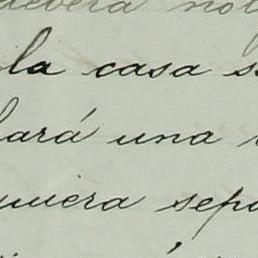 deverá not
la casa s
lará una
quiera sepa